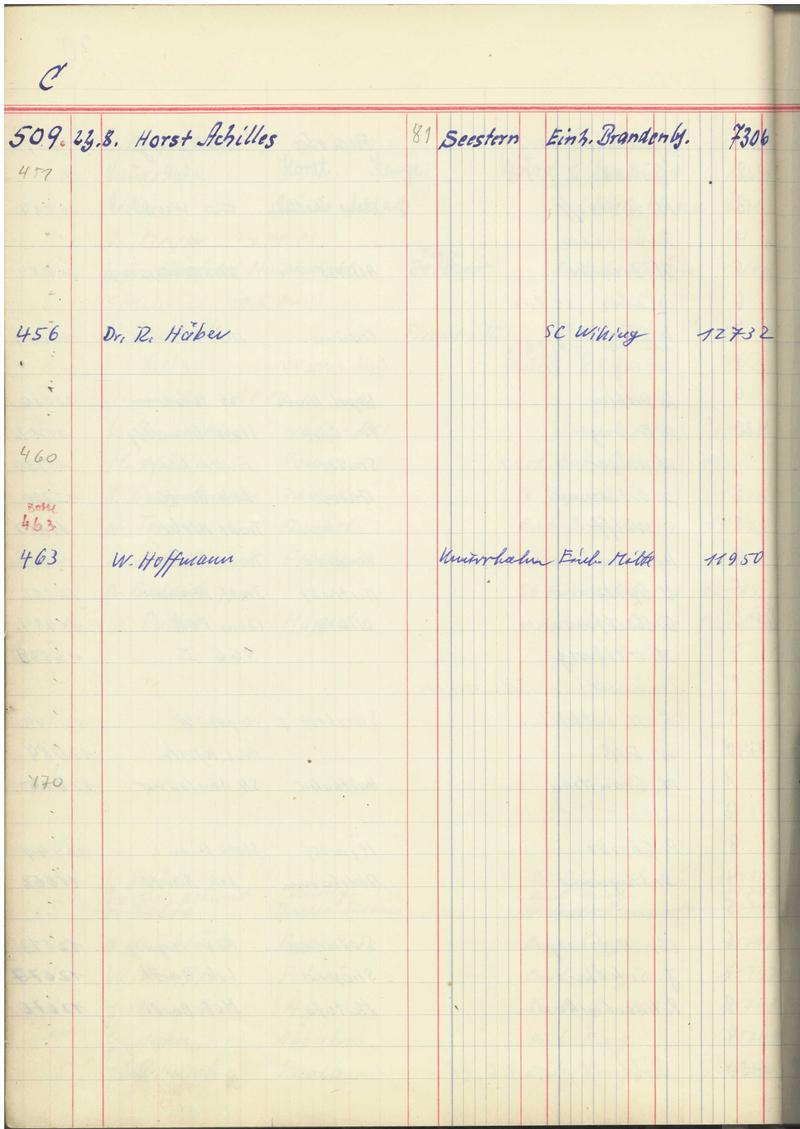 C
509. 29.8. Horst Achilles 81 Seestern Einh. Brandenbg. 7306
451
456 Dr. R. Häber SC Wiking 12732
460
463
463 W. Hoffmann Knurrhahn Einh. Mitte 11950
470